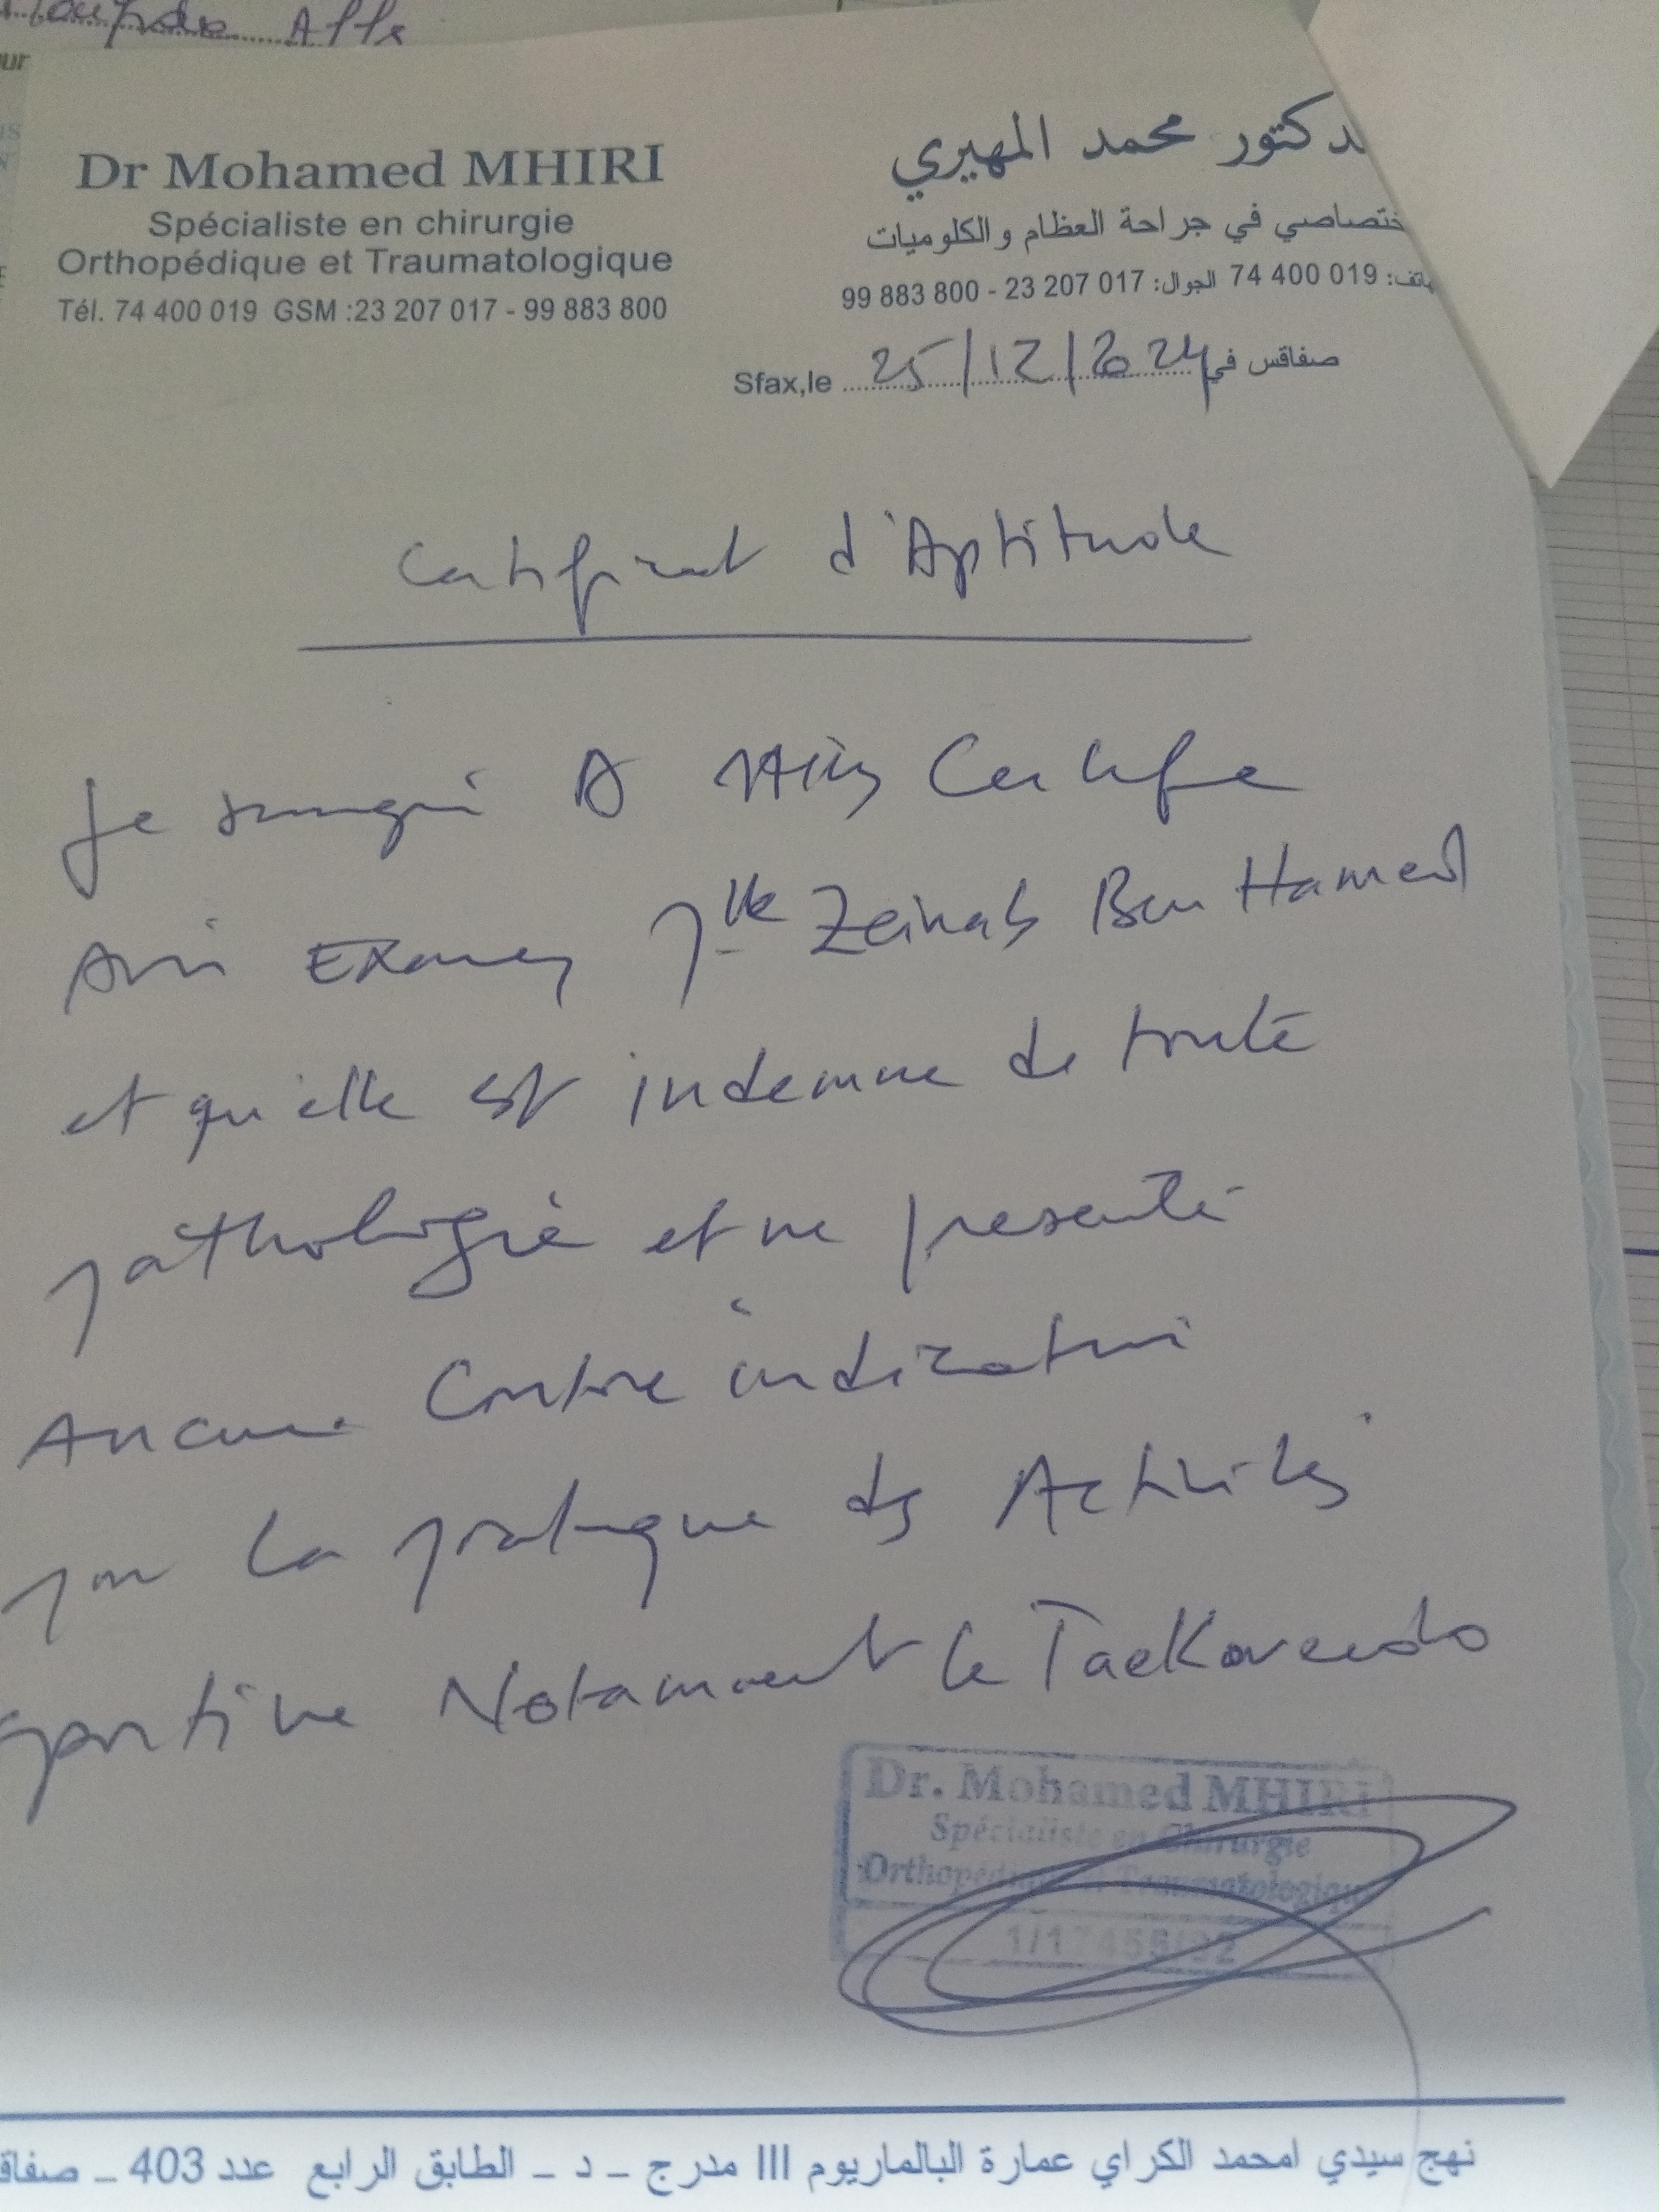 Affe
Dr Mohamed MHIRI
Spécialiste en chirurgie
Orthopédique et Traumatologique
Tél. 74 400 019 GSM :23 207 017 - 99 883 800
دكتور محمد المهيري
ختصاصي في جراحة العظام والكلوميات
اتف: 019 400 74 الجوال: 017 207 23 - 800 883 99
Sfax,le 25/12/2024 صفاقس في
Certificat d'Aptitude
Je soussigné Dr Mhiri Certifie
Avoir Examen Mlle Zeinab Ben Hamed
et qu'elle est indemne de toute
pathologie et ne présente
Aucune Contre indication
pour la pratique des Activités
sportive Notamment le Taekwendo
Dr. Mohamed MHIRI
Spécialiste en Chirurgie
Orthopédique et Traumatologique
نهج سيدي امحمد الكراي عمارة البالماريوم III مدرج - د - الطابق الرابع عدد 403 - صفاق